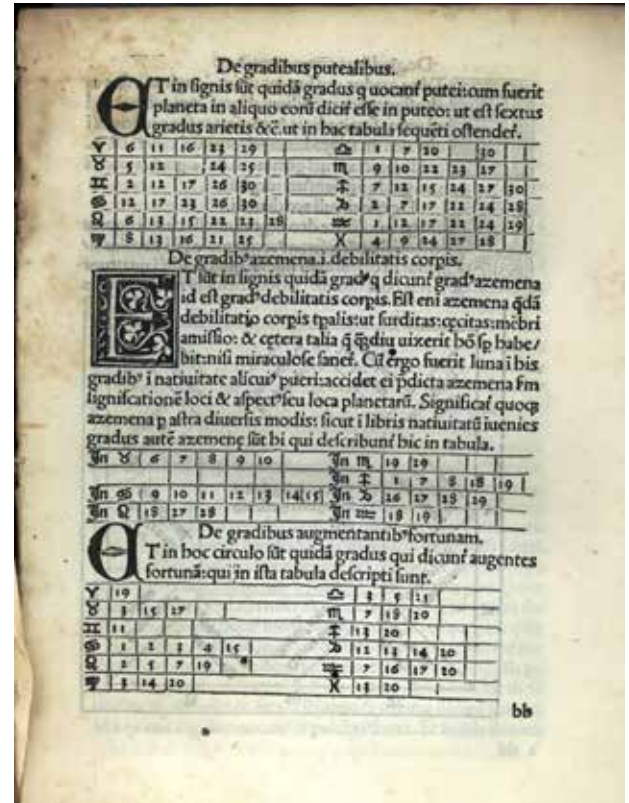 De gradibus putealibus.
ET in signis sũt quidã gradus q uocanť putei:cum fuerit
planeta in aliquo eorũ diciť esse in puteo: ut est sextus
gradus arietis &c̃. ut in hac tabula sequẽti ostendeť.
♈ | 6 | 11 | 16 | 23 | 29 | ♎ | 1 | 7 | 20 | | 30 |
♉ | 5 | 12 | | 24 | 25 | ♏ | 9 | 10 | 22 | 23 | 27 |
♊ | 2 | 12 | 17 | 26 | 30 | ♐ | 7 | 12 | 15 | 24 | 27 | 30
♋ | 12 | 17 | 23 | 26 | 30 | ♑ | 2 | 7 | 17 | 22 | 24 | 28
♌ | 6 | 13 | 15 | 22 | 23 | 28 ♒ | 1 | 12 | 17 | 22 | 24 | 29
♍ | 8 | 13 | 16 | 21 | 25 | ♓ | 4 | 9 | 24 | 27 | 28 |
De gradibꝰ azemena.i. debilitatis corpis.
ET sũt in signis quidã gradꝰ q dicunť gradꝰ azemena
id est gradꝰ debilitatis corpis. Est eni azemena q̃dã
debilitatio corpis tpalis: ut surditas: cęcitas: mẽbri
amissio: & cętera talia q̃ q̃diu uixerit hõ sp habe/
bit: nisi miraculose saneť. Cũ ergo fuerit luna ĩ his
gradibꝰ ĩ natiuitate alicuiꝰ pueri: accidet ei p̃dicta azemena fm
significationẽ loci & aspectꝰ seu loca planetarũ. Significať quoqꝫ
azemena p astra diuersis modis: sicut ĩ libris natiuitatũ iuenies
gradus autẽ azemenę sũt hi qui describunť hic in tabula.
In ♉ | 6 | 7 | 8 | 9 | 10 | In ♏ | 19 | 29 |
In ♐ | 1 | 7 | 8 | 18 | 19 |
In ♋ | 9 | 10 | 11 | 12 | 13 | 14 | 15 | In ♑ | 26 | 27 | 28 | 29 |
In ♌ | 18 | 27 | 28 | In ♒ | 18 | 19 |
De gradibus augmentantibꝰ fortunam.
ET in hoc circulo sũt quidã gradus qui dicunť augentes
fortunã: qui in ista tabula descripti sunt.
♈ | 19 | ♎ | 3 | 5 | 21 |
♉ | 3 | 15 | 27 | ♏ | 7 | 18 | 20 |
♊ | 11 | ♐ | 13 | 20 |
♋ | 1 | 2 | 3 | 4 | 15 | ♑ | 12 | 13 | 14 | 20 |
♌ | 2 | 5 | 7 | 19 | ♒ | 7 | 16 | 17 | 20 |
♍ | 3 | 14 | 20 | ♓ | 13 | 20 |
bb